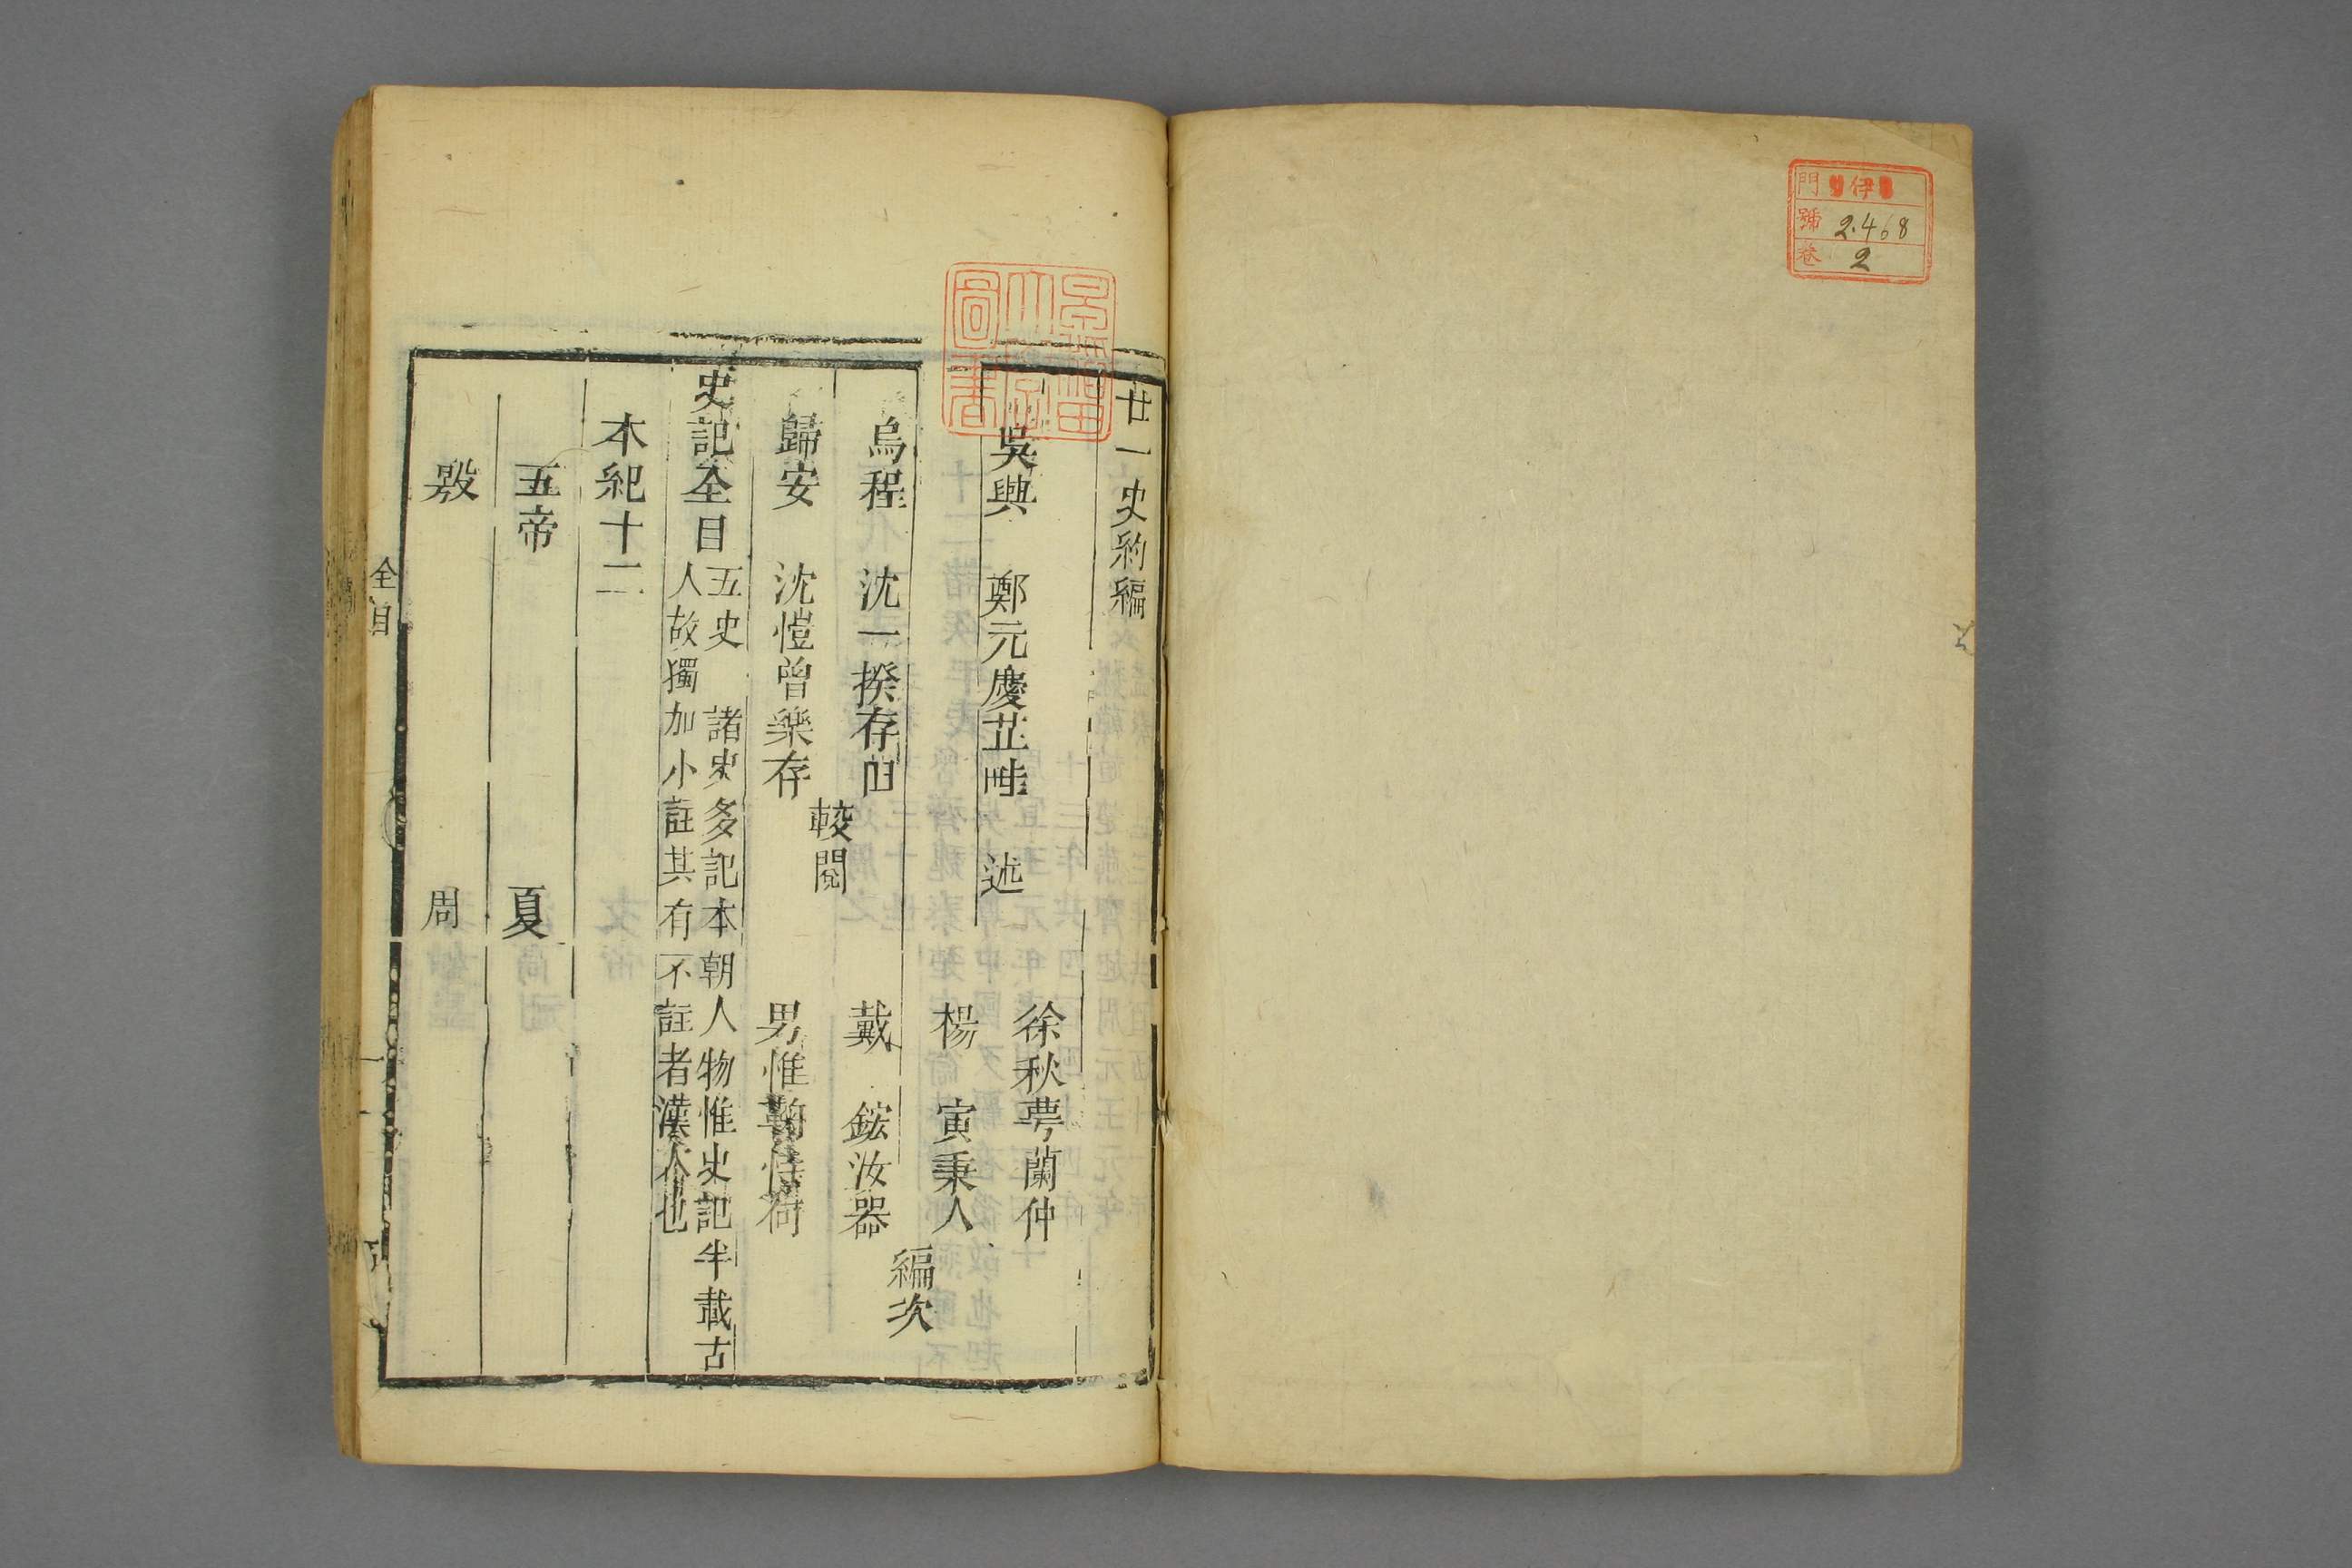 門 伊
號 2.468
卷 2
廿一史約編
吳興 鄭元慶芷畦 述
徐秋蕚蘭仲
楊 寅秉人
編次
烏程 沈一揆存田
戴 鋐汝器
較閱
歸安 沈愷曾樂存
男惟 荷
史記全目
五史 諸史多記本朝人物惟史記半載古
人故獨加小註其有不註者漢人也
本紀十二
五帝 夏
殷 周
全目
圖書